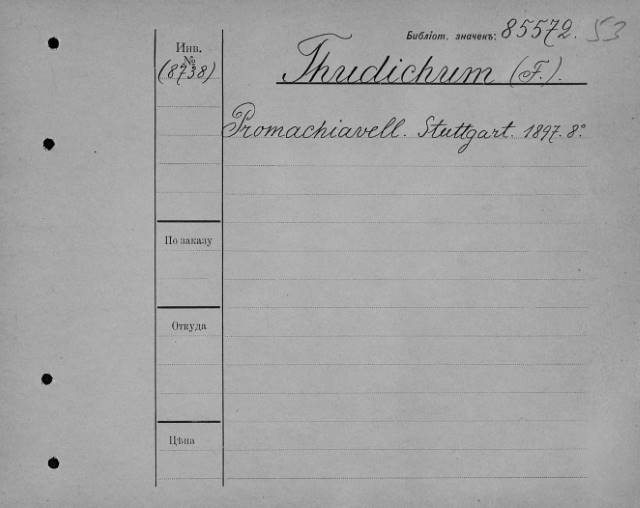 Библіот. значекъ: 85572. 53
Инв.
№
(8738)
Thudichum (F.).
Promachiavell. Stuttgart. 1897. 8º
По заказу
Откуда
Цѣна